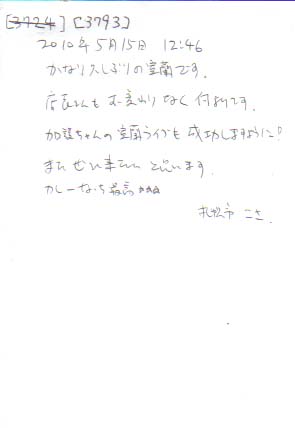 [3724] [3793]
2010年5月15日 12:46
かなり久しぶりの室蘭です。
店長さんもお変わりなく何よりです。
加護ちゃんの室蘭ライブも成功しますように!
またぜひ来たいと思います。
カレーなら最高
札幌市